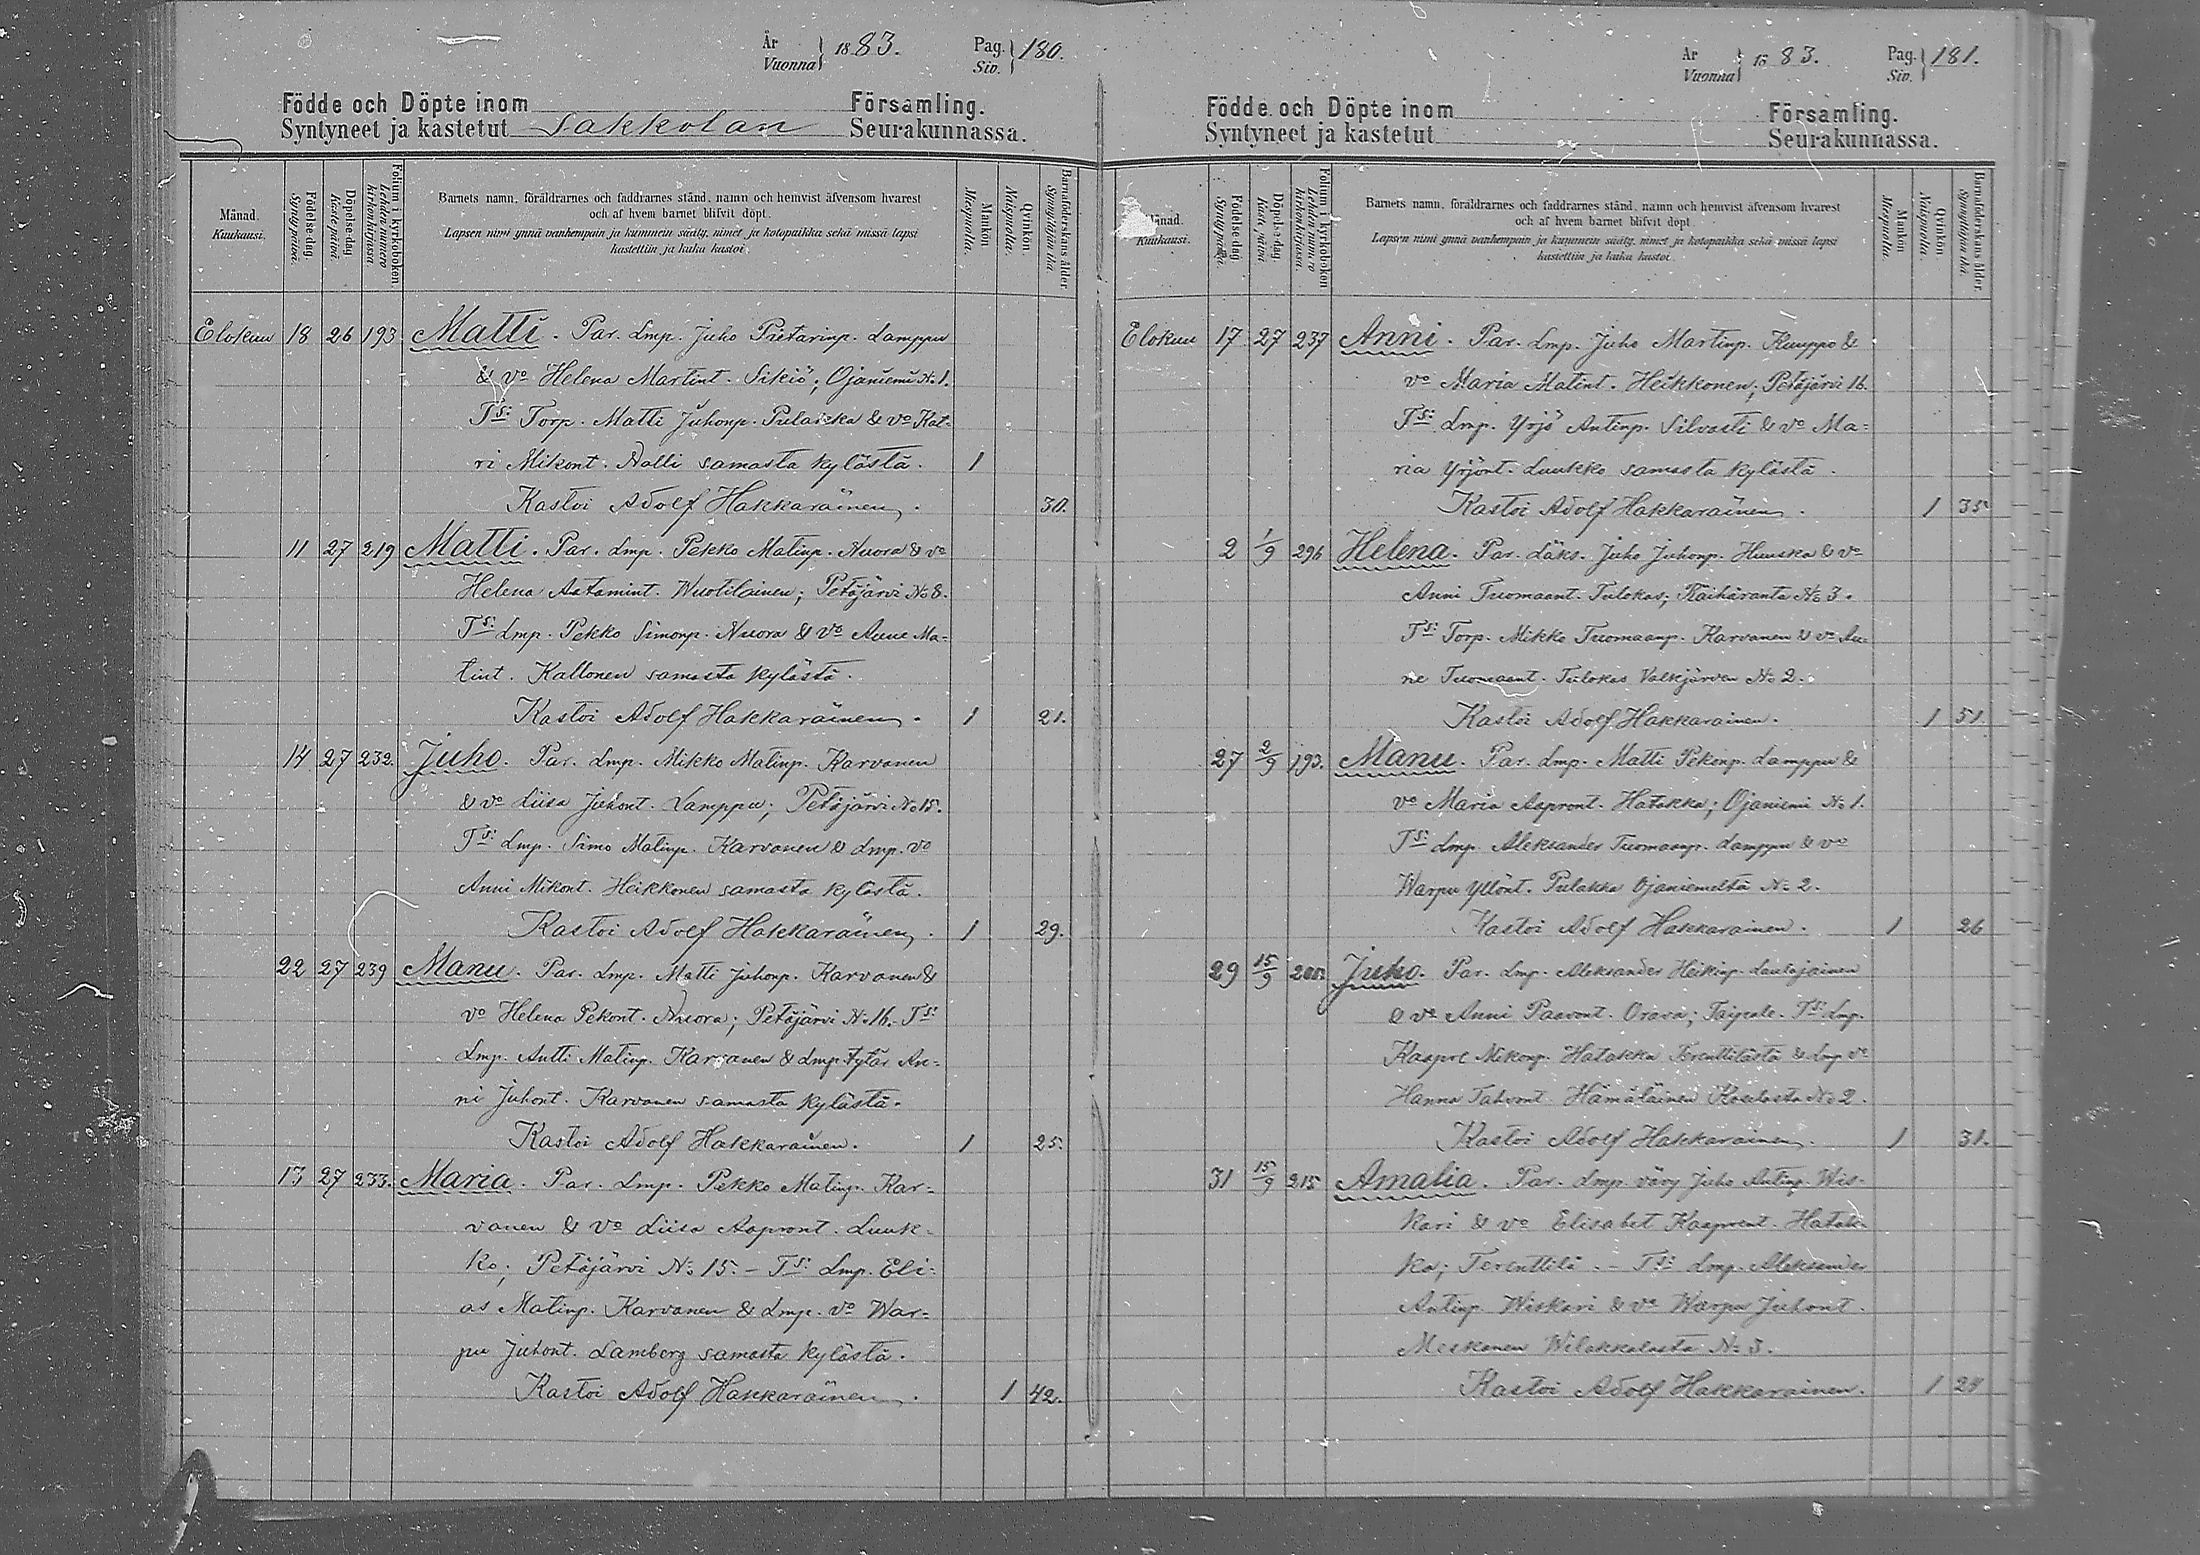 År Vuonna 1883. Pag. Siv. 180.
Födde och Döpte inom Församling.
Syntyneet ja kastetut Sakkolan Seurakunnassa.
Månad. Kuukausi.
Födelse-dag Syntyi päivä.
Döpelse-dag Kastepäivä
Folium i kyrkoboken Lehden numero kirkonkirjassa.
Barnets namn, föräldrarnes och faddrarnes stånd, namn och hemvist äfvensom hvarest
och af hvem barnet blifvit döpt.
Lapsen nimi ynnä vanhempain ja kummein sääty, nimet ja kotopaikka sekä missä lapsi
kastettiin ja kuka kastoi.
Mankön. Miespuolia.
Qvinkön. Naispuolia.
Barnaföderskans ålder Synnyttäjän ikä
Elokuu 18 26 193 Matti. Par. Lmp. Juho Pietarinp. Lamppu
& vo Helena Martint. Sikiö; Ojaniemi No 1.
Ts: Torp. Matti Juhonp. Pulakka & vo Kat-
ri Mikont. Nalli samasta kylästä. 1
Kastoi Adolf Hakkarainen. 30.
11 27 219 Matti. Par. Lmp. Pekko Matinp. Nuora & vo
Helena Aatamint. Wuotilainen; Petäjärvi No 8.
Ts: Lmp. Pekko Simonp. Nuora & vo Anne Ma-
tint. Kallonen samasta kylästä.
Kastoi Adolf Hakkarainen. 1 21.
14 27 232. Juho. Par. Lmp. Mikko Matinp. Karvanen
& vo Liisa Juhont. Lamppu; Petäjärvi No 15.
Ts: Lmp. Simo Matinp. Karvanen & Lmp. vo
Anni Mikont. Heikkonen samasta kylästä.
Kastoi Adolf Hakkarainen. 1 29.
22 27 239 Manu. Par. Lmp. Matti Juhonp. Karvanen &
vo Helena Pekont. Nuora; Petäjärvi No 16. Ts:
Lmp. Antti Matinp. Karvanen & Lmp. tytär An-
ni Juhont. Karvanen samasta kylästä.
Kastoi Adolf Hakkarainen. 1 25.
13 27 233. Maria. Par. Lmp. Pekko Matinp. Kar-
vanen & vo Liisa Aapront. Luuk-
ko; Petäjärvi No 15. – Ts: Lmp. Eli-
as Matinp. Karvanen & Lmp. vo War-
pu Juhont. Lamberg samasta kylästä.
Kastoi Adolf Hakkarainen. 1 42.
År Vuonna 1883. Pag. Siv. 181.
Födde och Döpte inom Församling.
Syntyneet ja kastetut Seurakunnassa.
Månad. Kuukausi.
Födelse-dag
Döpelse-dag
Folium i kyrkoboken Lehden numero kirkonkirjassa.
Barnets namn, föräldrarnes och faddrarnes stånd, namn och hemvist äfvensom hvarest
och af hvem barnet blifvit döpt.
Lapsen nimi ynnä vanhempain ja kummein sääty, nimet ja kotopaikka sekä missä lapsi
kastettiin ja kuka kastoi.
Mankön Miespuolia.
Qvinkön Naispuolia.
Barnaföderskans ålder. Synnyttäjän ikä.
Elokuu 17 27 237 Anni. Par. Lmp. Juho Martinp. Kuuppo &
vo Maria Matint. Heikkonen; Petäjärvi 16.
Ts: Lmp. Yrjö Antinp. Silvasti & vo Ma-
ria Yrjönt. Luukko samasta kylästä.
Kastoi Adolf Hakkarainen. 1 35
2 1/9 296 Helena. Par. Läks. Juho Juhonp. Huuska & vo
Anni Tuomaant. Tulokas; Räihäranta No 3.
Ts: Torp. Mikko Tuomaanp. Karvanen & vo An-
ne Tuomaant. Tulokas Valkjärven No 2.
Kastoi Adolf Hakkarainen. 1 51
27 2/9 193. Manu. Par. Lmp. Matti Pekonp. Lamppu &
vo Maria Aapront. Hatakka; Ojaniemi No 1.
Ts: Lmp. Aleksander Tuomaanp. Lamppu & vo
Warpu Yllönt. Pulakka Ojaniemeltä No 2.
Kastoi Adolf Hakkarainen. 1 26
29 15/9 Juho. Par. Lmp. Aleksander Heikinp. Lautajainen
& vo Anni Paavont. Orava; Taipale. Ts: Lmp.
Kaapre Mikonp. Hatakka Terenttilästä & Lmp. vo
Hanna Tahvont. Hämäläinen No 2.
Kastoi Adolf Hakkarainen. 1 31.
31 15/9 215 Amalia. Par. Lmp. vävy Juho Antinp. Wis-
kari & vo Elisabet Kaapront. Hatak-
ka; Terenttilä. – Ts: Lmp. Aleksander
Antinp. Wiskari & vo Warpu Juhont.
Meskanen Wilakkalasta No 3.
Kastoi Adolf Hakkarainen. 1